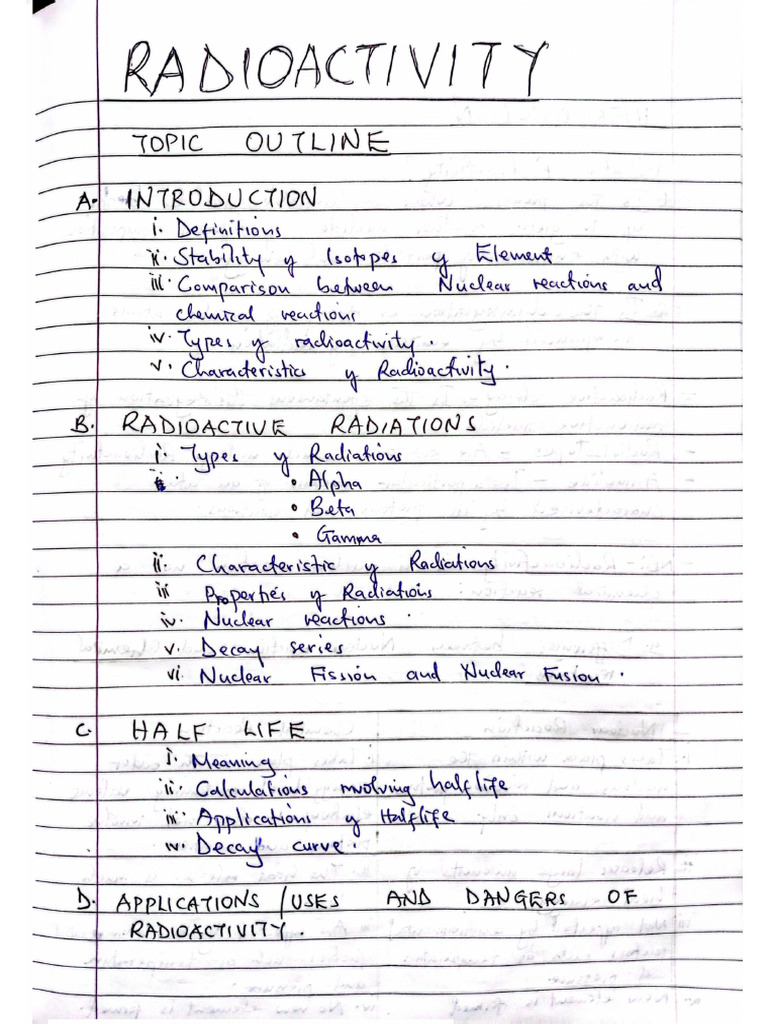 RADIOACTIVITY
TOPIC OUTLINE
A. INTRODUCTION
i. Definitions
ii. Stability of Isotopes of Element
iii. Comparison between Nuclear reactions and
chemical reactions
iv. Types of radioactivity.
v. Characteristics of Radioactivity.
B. RADIOACTIVE RADIATIONS
i. Types of Radiations
• Alpha
• Beta
• Gamma
ii. Characteristic of Radiations
iii Properties of Radiations
iv. Nuclear reactions.
v. Decay series
vi. Nuclear Fission and Nuclear Fusion.
C. HALF LIFE
i. Meaning
ii. Calculations involving half life
iii. Applications of Halflife
iv. Decay curve.
D. APPLICATIONS/USES AND DANGERS OF
RADIOACTIVITY.